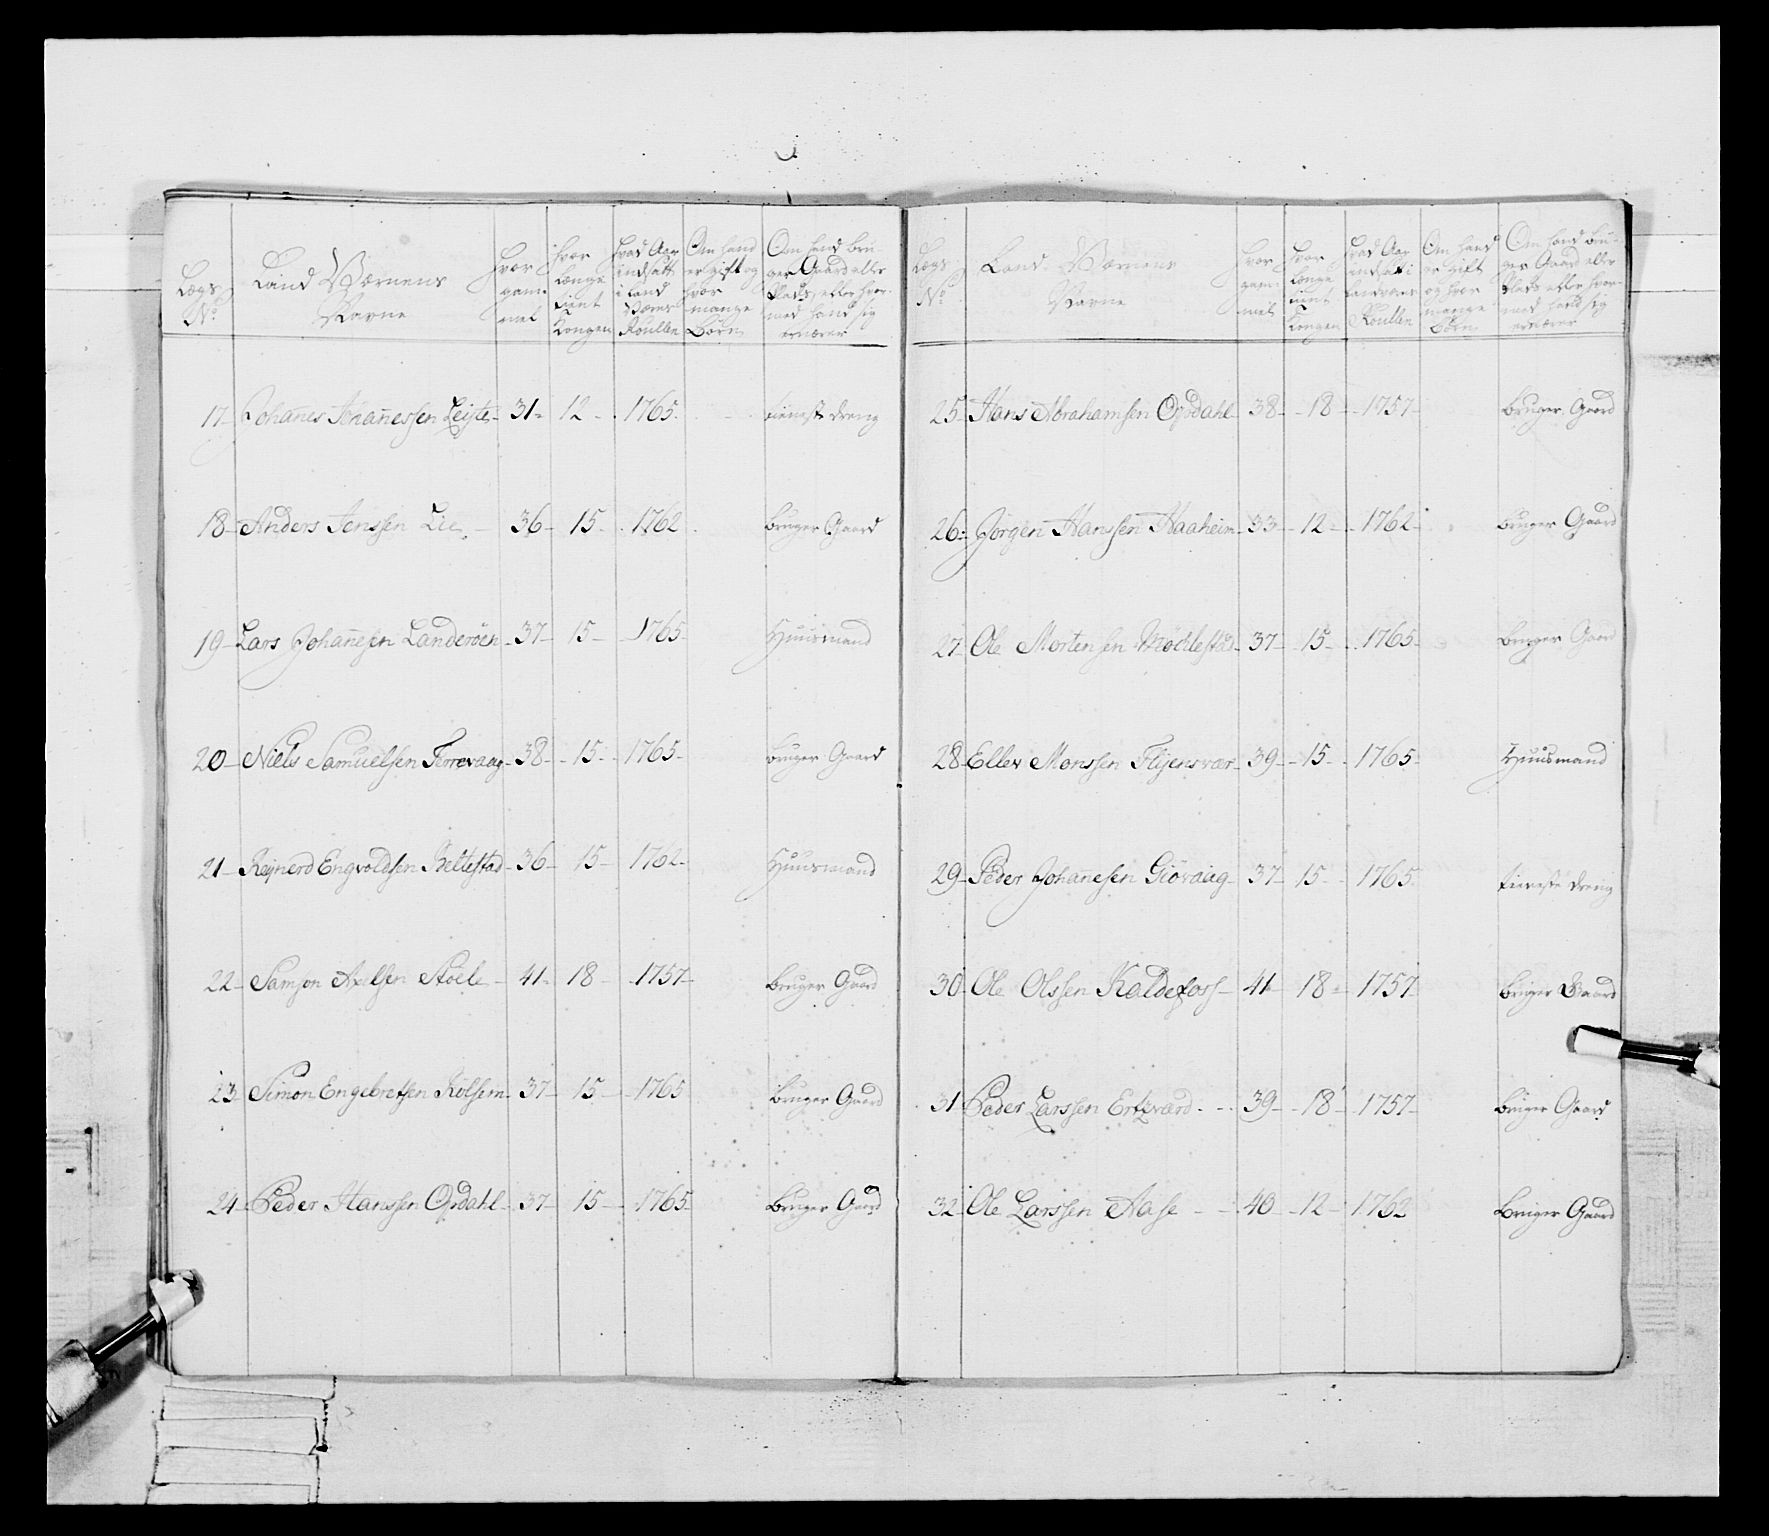 Lægs No
Land Værnens Navne
Hvor gam- mel
hvor Længe Tient Kongen
Hvad Aar indsatt i Land Værns Roullen
Om hand er gift og hvor mange Børn
Om hand bru- ger Gaard eller Plads, eller hvor- med hand sig ernærer
17 Johanes Johannessen Leiste 31 12 1765 tienest dreng
18 Anders Jenssen Lie 36 15 1762 bruger Gaard
19 Lars Johanesen Landerøen 37 15 1765 Huusmand
20 Niels Samuelsen Terrevaag 38 15 1765 bruger Gaard
21 Reynerd Engvoldsen Reltestad 36 15 1762 Huusmand
22 Samson Axelsen Støele 41 18 1757 bruger Gaard
23 Simon Engebretsen Rølsem 37 15 1765 bruger Gaard
24 Peder Hanssen Opdahl 37 15 1765 Bruger Gaard
Lægs No
Land Værnens Navne
Hvor gam- mel
Hvor længe tient Kongen
Hvad Aar indsatt i Landværns Roullen
Om hand er gift og hvor mange Børn
Om hand bru- ger Gaard eller Plads eller hvor- med hand sig ernærer
25 Hans Abrahamsen Opdahl 38 18 1757 bruger Gaard
26 Jørgen Hanssen Haaheim 33 12 1762 bruger Gaard
27 Ole Mortensen Møchlestad 37 15 1765 bruger Gaard
28 Ellev Monssen Flijensvær 39 15 1765 Huusmand
29 Peder Johannesen Giøvaag 37 15 1765 tieneste dreng
30 Ole Olssen Kaldefoss 41 18 1757 bruger Gaard
31 Peder Larssen Ertzværd 39 18 1757 bruger Gaard
32 Ole Larssen Aase 40 12 1762 Bruger Gaard